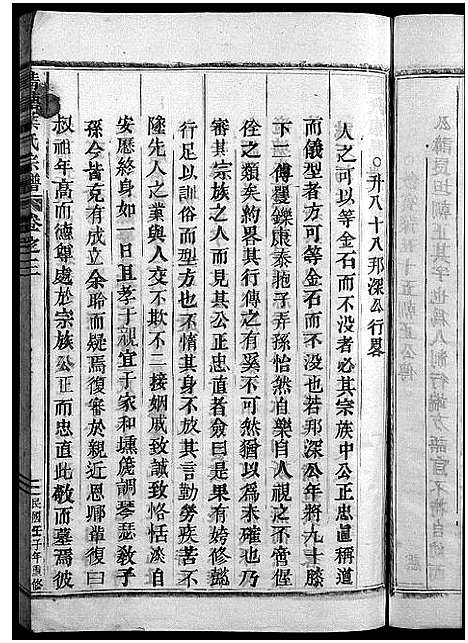 升八十八邦深公行畧
人之可以等金石而不没者必其宗族中公正忠直稱道
而儀型者方可等金石而不没也若邦深公年將九十膝
下二傳矍鑠康泰抱子弄孫怡然自樂自人視之不啻偓
佺之類矣約畧其行傳之有奚不可然猶以爲未確也乃
審其宗族之人而見其公正忠直者僉曰是果有姱修懿
行足以訓俗而型方也不惰其身不放其言勤勞疾苦不
墜先人之業與人交不欺不二接姻戚致誠致恪恬淡自
安歷終身如一日且孝于親宜于家和壎箎調琴瑟教子
孫今皆克有成立余聆而疑焉復審於親近恩卿輩復曰
叔祖年高而德尊處於宗族公正而忠直此敬而慕焉彼
氏宗譜
卷之二
民國壬子年重修